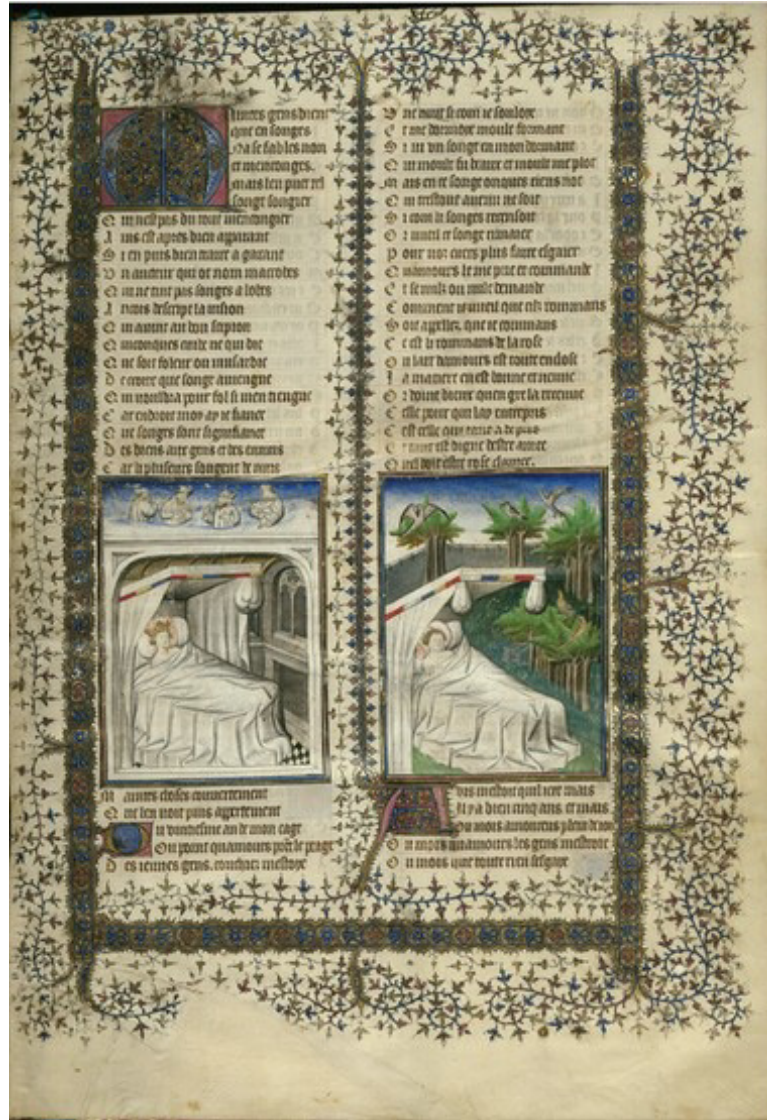 Maintes gens dient
que en songes
Na se fables non
et menconges.
mais len puet tel
songe songier
Qui nest pas du tout mencongier
Ains est apres bien apparant
Si en puis bien traire a garant
Un aucteur qui ot nom macrobes
Qui ne tint pas songes a lobes
Ancois descript la vision
Qui avint au roy scipion
Quiconques cuide ne qui die
Que soit foleur ou musardie
De croire que songe aviengne
Qui vouldra pour fol si men tiengne
Car endroit moy ay ie fiance
Que songes sont signifiance
Des biens aux gens et des ennuis
Car li pluseurs songent de nuis
Maintes choses couvertement
Que len voit puis appertement
Ou vintiesme an de mon eage
Ou point quamours prent le peage
Des ieunes gens. couchiez mestoie
Une nuit si com ie souloie
Et me dormoie moult forment
Si vi un songe en mon dormant
Qui moult fu biaux et moult me plot
Mais en ce songe onques riens not
Qui trestout avenu ne soit
Si com li songes recensoit
Or vueil ce songe rimaier
Pour noz cuers plus faire esgaier
Quamours le me prie et commande
Et se nulz ou nulle demande
Comment ie vueil que cilz rommans
Soit appellez que ie commans
Ce est li rommans de la rose
Ou lart damours est toute enclose
La matiere en est bonne et neuve
Or doint dieux quen gre la recueuve
Celle pour qui lay entrepris
Cest celle qui tant a de pris
Et tant est digne destre amee
Quel doit estre rose clamee.
Avis mestoit quil iert mais
Il y a bien cinq ans et mais
Ou mois amoureux plein de ioie
Ou mois quamoureuses gens mestroie
Ou mois que toute rien sesgaie